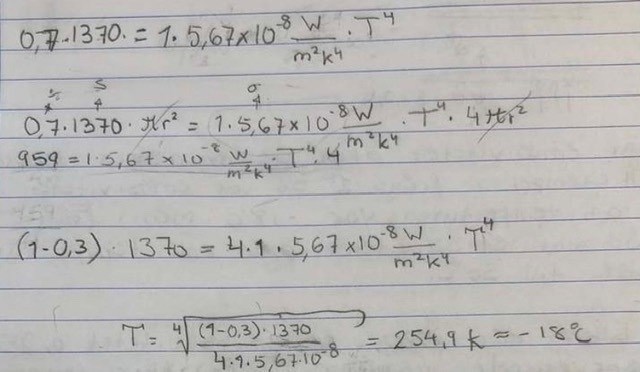 0,7·1370· = 1·5,67×10⁻⁸ W/m²k⁴ · T⁴
S σ
0,7·1370· πr² = 1·5,67×10⁻⁸ W/m²k⁴ · T⁴ · 4πr²
959 = 1·5,67×10⁻⁸ W/m²k⁴ · T⁴·4
(1-0,3)·1370 = 4·1·5,67×10⁻⁸ W/m²k⁴ · T⁴
T = ⁴√((1-0,3)·1370 / 4·1·5,67·10⁻⁸) = 254,9 k ≈ -18°C